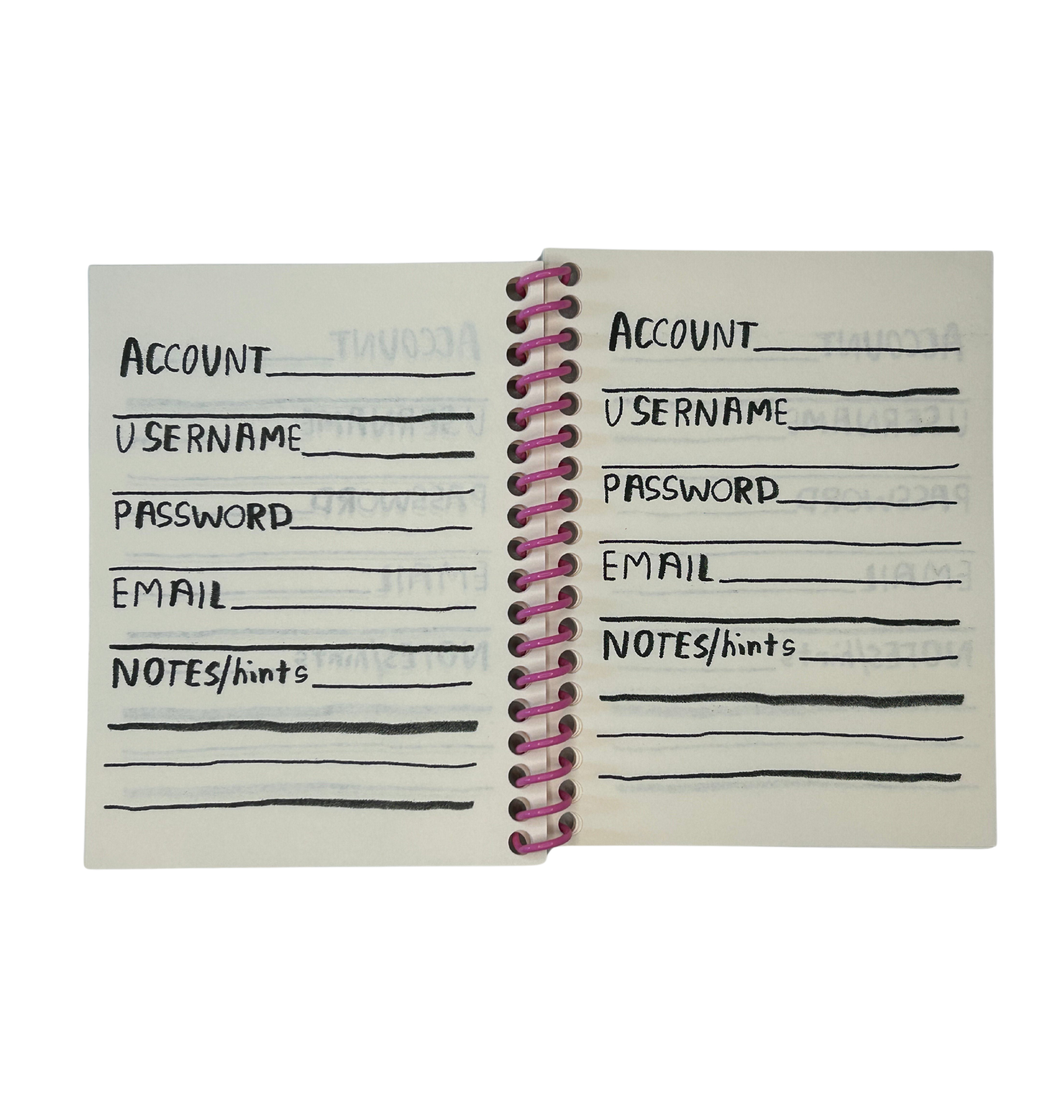 ACCOUNT
USERNAME
PASSWORD
EMAIL
NOTES/hints
ACCOUNT
USERNAME
PASSWORD
EMAIL
NOTES/hints